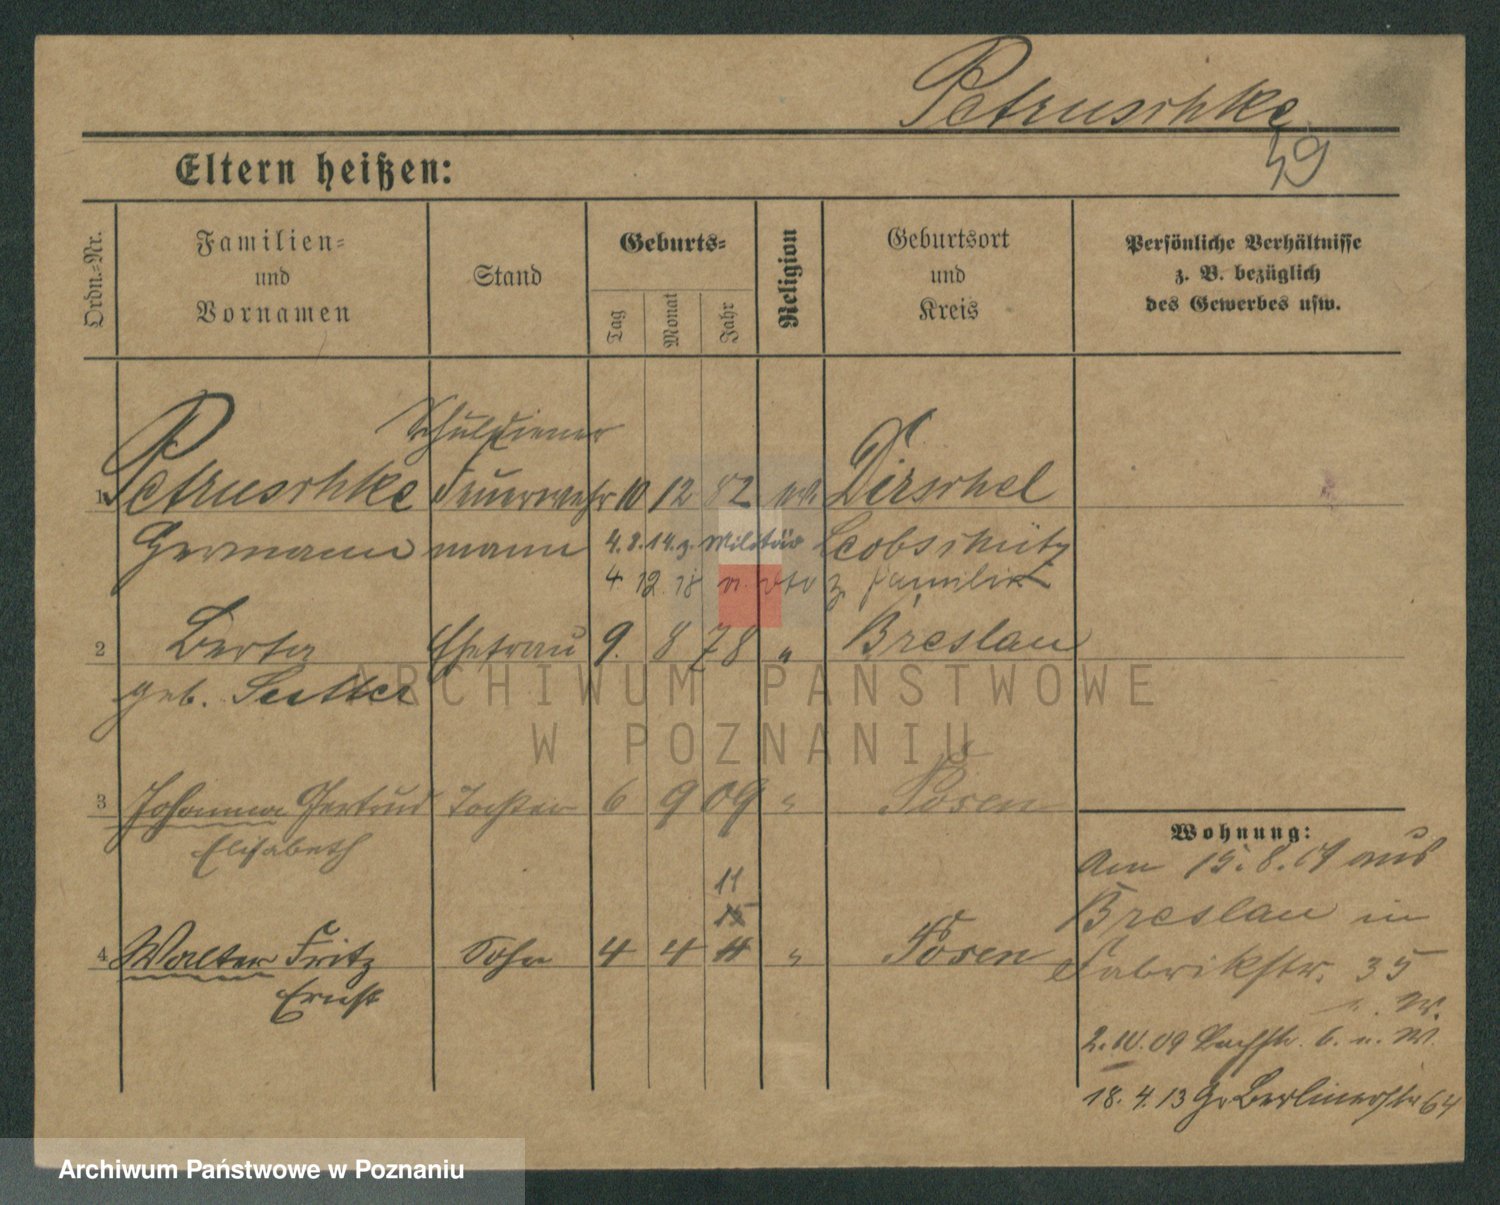 Petruschke
49
Eltern heißen:
Ordn.-Nr.
Familien-
und
Vornamen
Stand
Geburts-
Tag
Monat
Jahr
Religion
Geburtsort
und
Kreis
Persönliche Verhältnisse
z. B. bezüglich
des Gewerbes usw.
Schuldiener
1 Petruschke Feuerwehr 10 12 82 Dirschel
Hermann mann 4.8.14. z. Militär Leobschütz
4 12. 18 v. dto z. Familie
2 Berta Ehefrau 9. 8 78 " Breslau
geb. Sutter
3 Johanna Gertrud Tochter 6 9 09 " Posen
Elisabeth
11
4 Walter Fritz Sohn 4 4 " Posen
Ernst
Wohnung:
Am 15.8.09 aus
Breslau in
Fabrikstr. 35
n. W.
2. 09 6. n. W.
18. 4. 13 Gr. Berlinerstr 64
ARCHIWUM PAŃSTWOWE
W POZNANIU
Archiwum Państwowe w Poznaniu